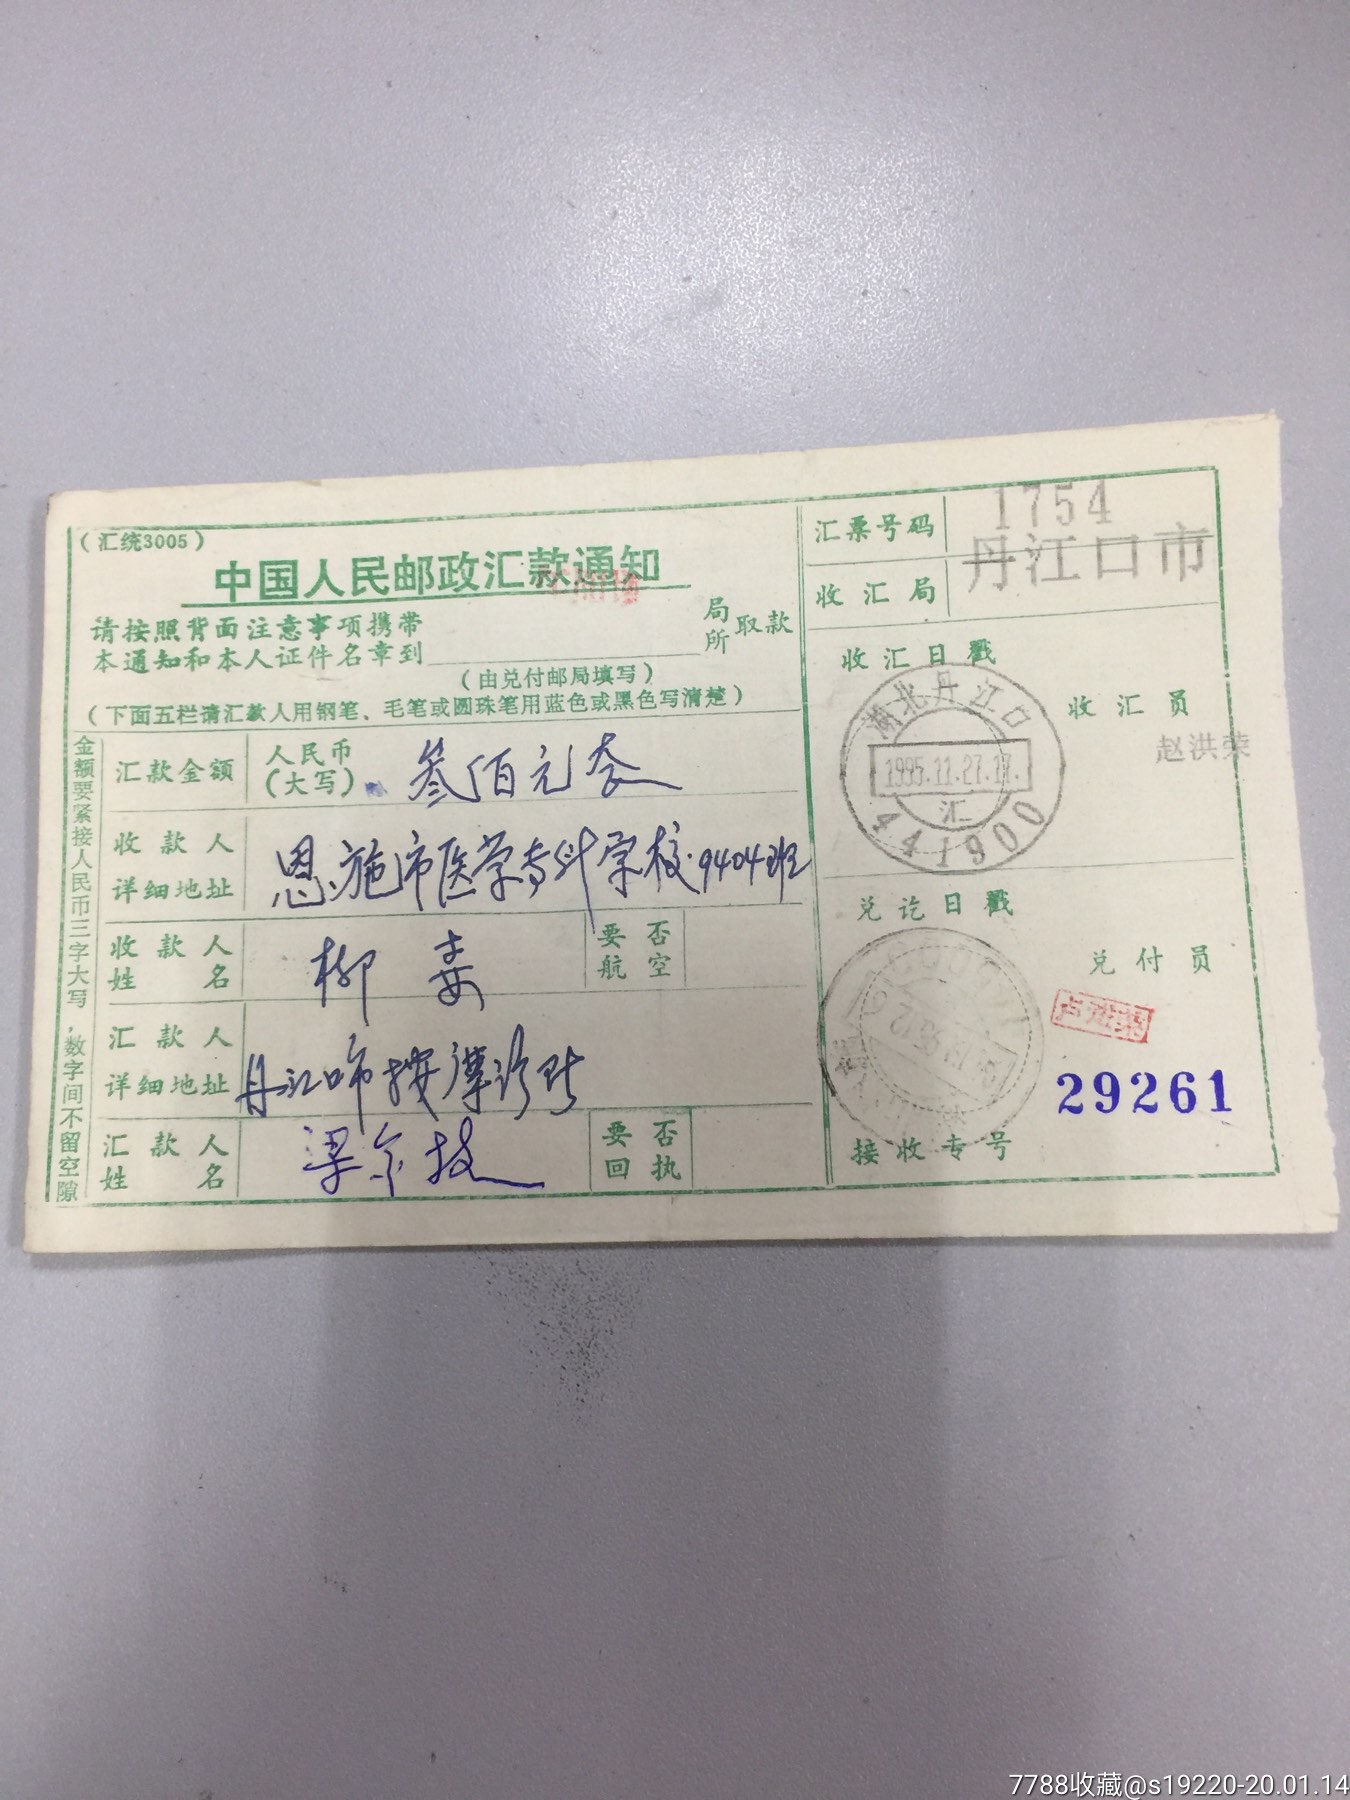 （汇统3005）
中国人民邮政汇款通知
请按照背面注意事项携带
本通知和本人证件名章到
局所
取款
（由兑付邮局填写）
（下面五栏请汇款人用钢笔、毛笔或圆珠笔用蓝色或黑色写清楚）
金额要紧接人民币三字大写，数字间不留空隙
汇款金额
人民币
（大写）
叁佰元
收款人
详细地址
恩施市医学专科学校9404班
收款人
姓名
柳
要否
航空
汇款人
详细地址
丹江口市按摩诊所
汇款人
姓名
梁
要否
回执
汇票号码
1754
收汇局
丹江口市
收汇日戳
湖北丹江口
1995.11.27.17.
汇
441900
收汇员
赵洪荣
兑讫日戳
兑付员
29261
接收专号
7788收藏@s19220-20.01.14